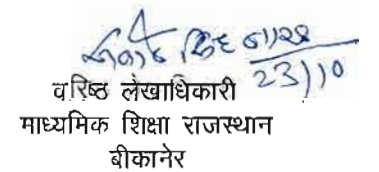 23/10
वरिष्ठ लेखाधिकारी
माध्यमिक शिक्षा राजस्थान
बीकानेर